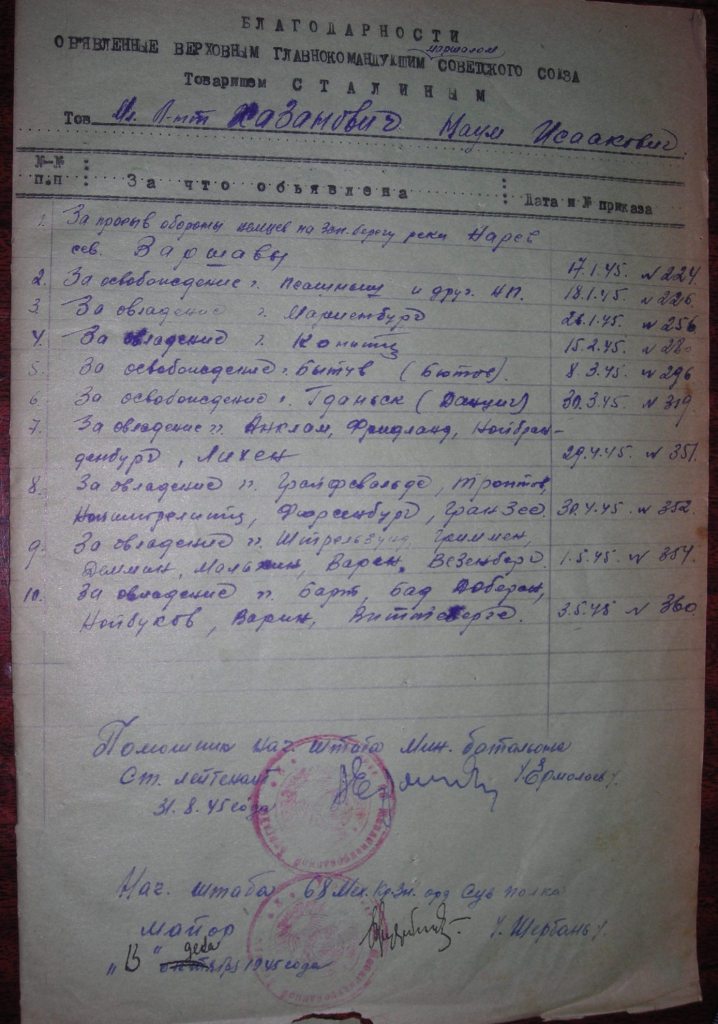 БЛАГОДАРНОСТИ
маршалом
ОБЪЯВЛЕННЫЕ ВЕРХОВНЫМ ГЛАВНОКОМАНДУЮЩИМ СОВЕТСКОГО СОЮЗА
Товарищем СТАЛИНЫМ
Тов. Мл. Л-нт Хазанович Наум Исаакович
№-№ п.п За что объявлена Дата и № приказа
1. За прорыв обороны немцев на зап. берегу реки Нарев
сев. Варшавы 17.1.45. № 224.
2. За освобождение г. и друг. НП. 18.1.45. № 226.
3. За овладение г. Мариенбург 26.1.45. № 256
4. За овладение г. Кониц 15.2.45. № 280
5. За освобождение г. Бытув (Бютов). 8.3.45. № 296
6. За освобождение г. Гданьск (Данциг) 30.3.45. № 319.
7. За овладение г.г. Анклам, Фридланд, Нойбран-
денбург, Лихен 29.4.45. № 351.
8. За овладение г.г. Грайфсвальде, Трептов,
Нойштрелитц, Фюрстенберг, Гран Зее. 30.4.45. № 352.
9. За овладение г.г. Штральзунд, Гриммен,
Деммин, Мальхин, Варен, Везенберг. 1.5.45. № 354.
10. За овладение г.г. Барт, Бад Доберан,
Нойбуков, Варин, Виттенберге. 3.5.45 № 360.
Помошник нач. штаба Мин. батальона
Ст. лейтенант /Ермолаев/
31.8.45 года
Нач. штаба 68 Мех. Кр.Зн. орд Сув полка
майор /Щербань/
"13" 1945 года